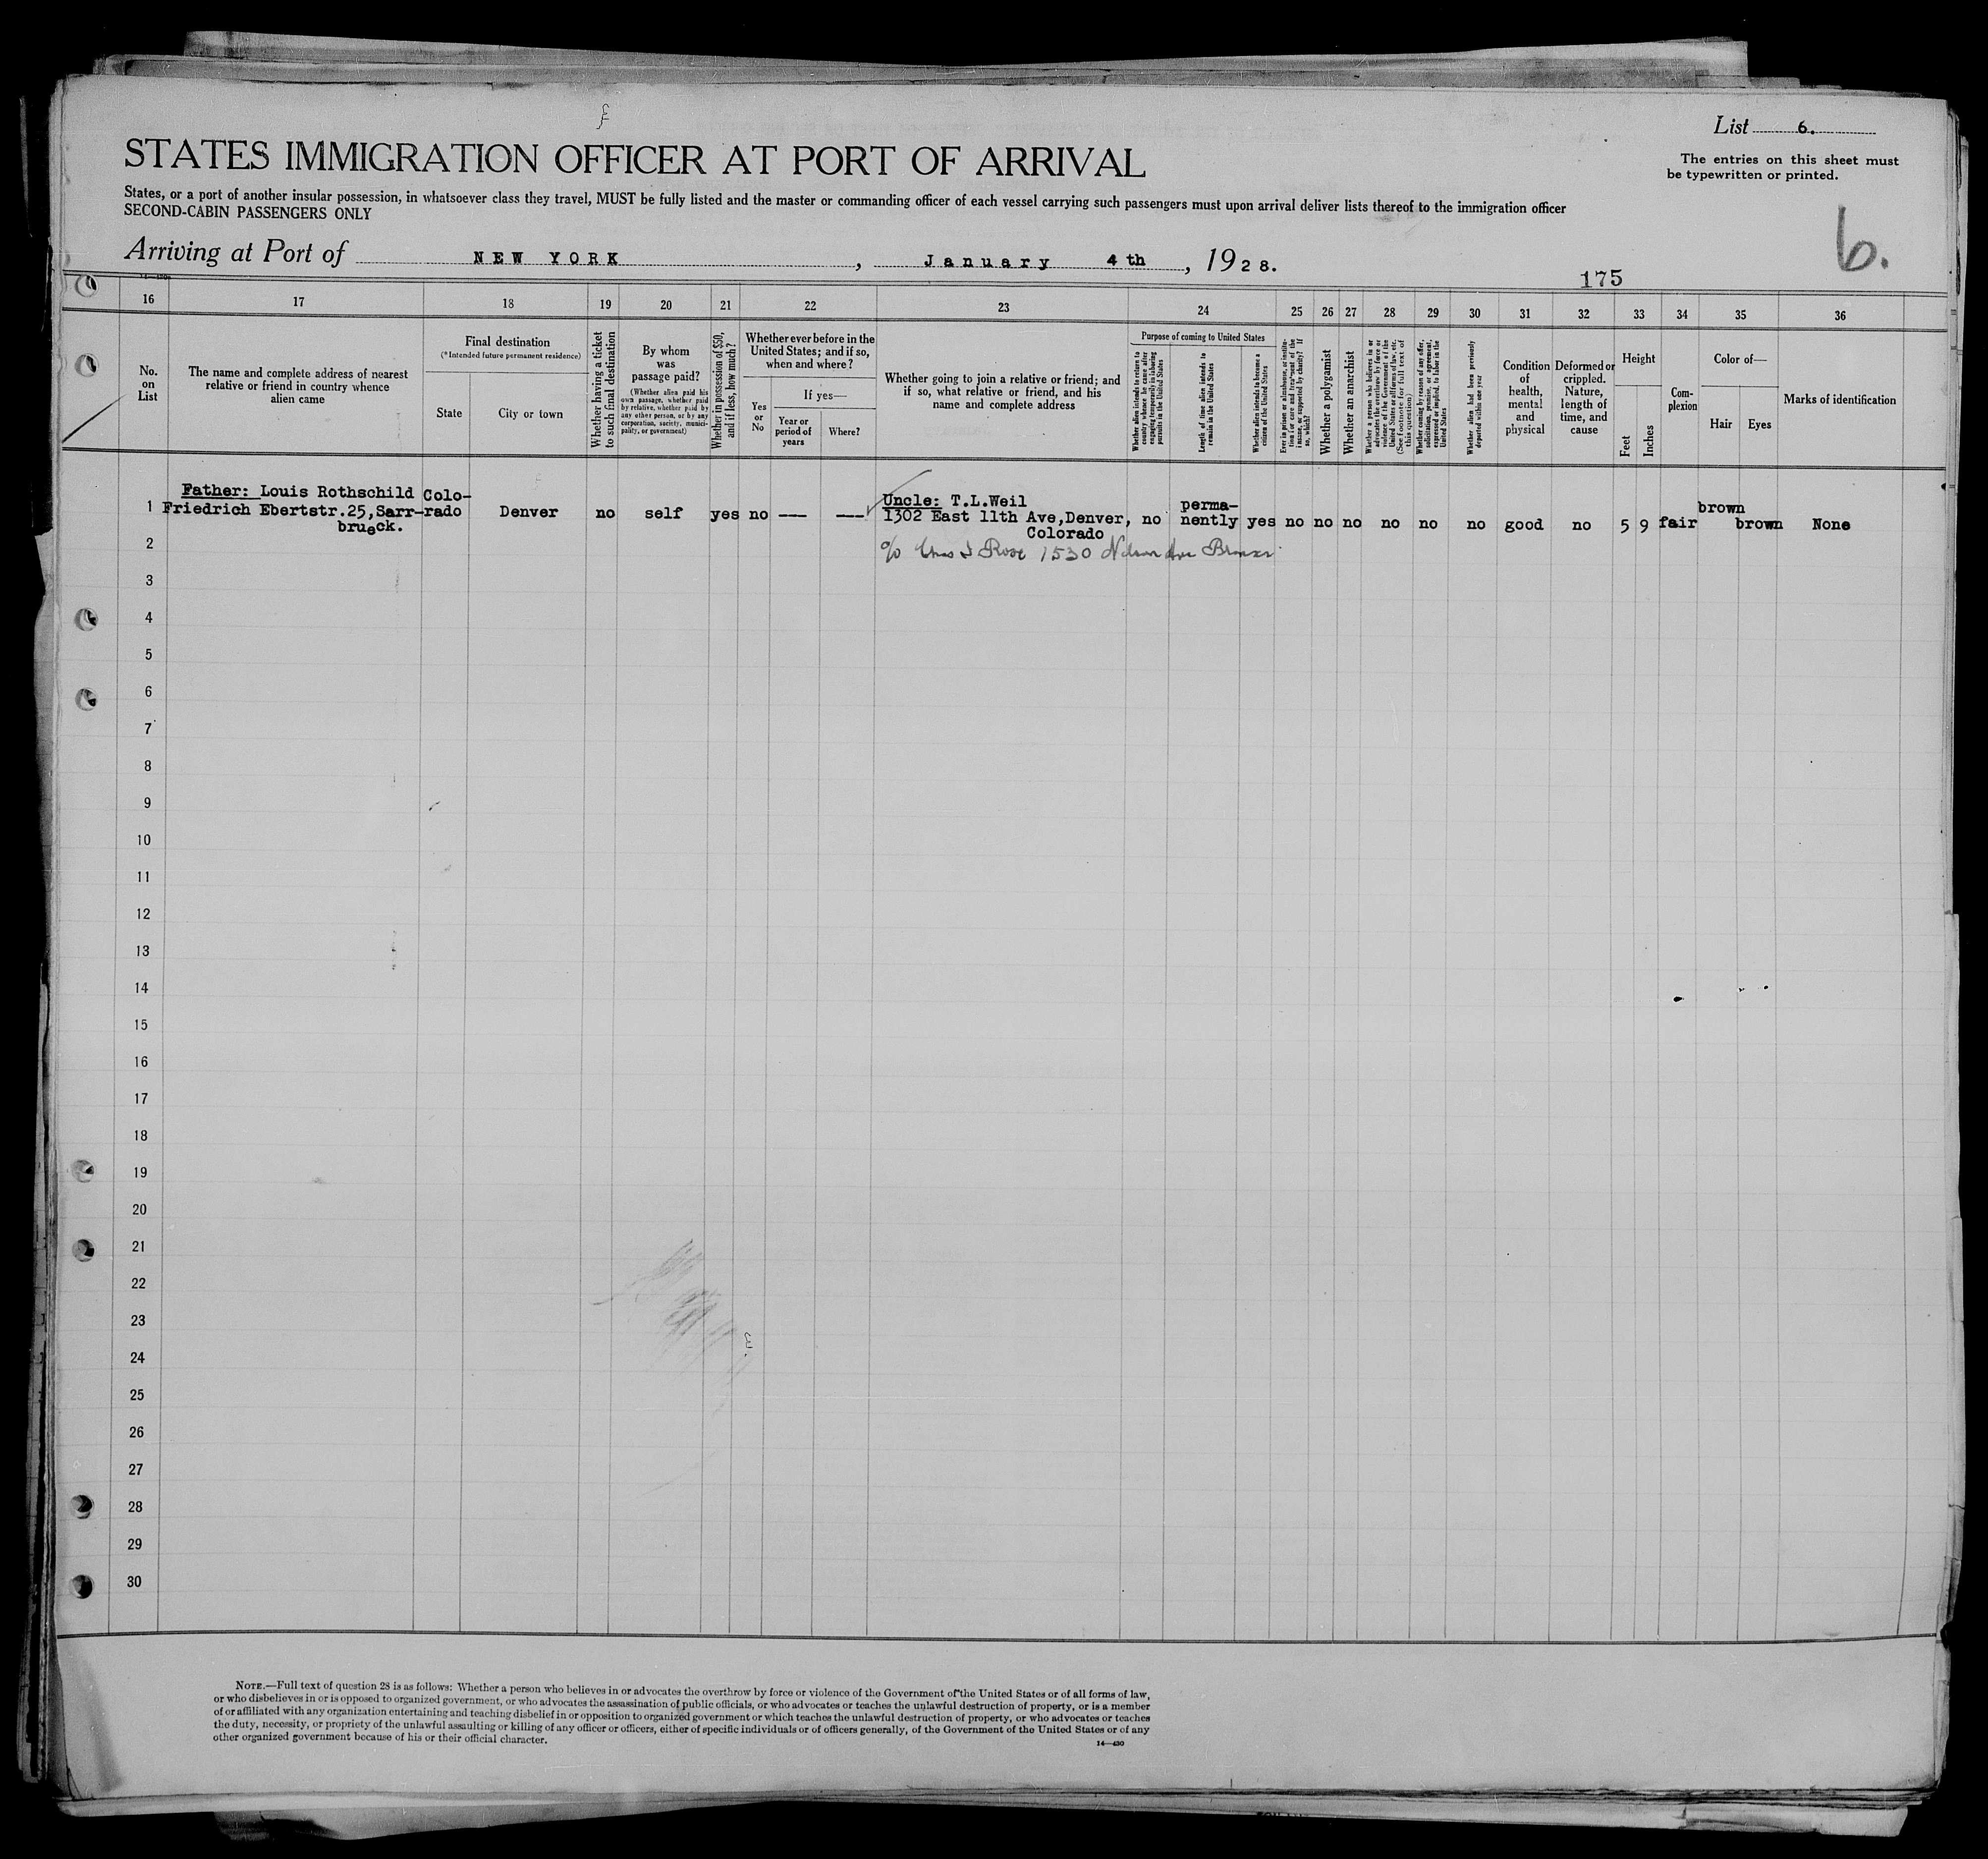 List 6.
The entries on this sheet must
be typewritten or printed.
STATES IMMIGRATION OFFICER AT PORT OF ARRIVAL
States, or a port of another insular possession, in whatsoever class they travel, MUST be fully listed and the master or commanding officer of each vessel carrying such passengers must upon arrival deliver lists thereof to the immigration officer
SECOND-CABIN PASSENGERS ONLY
6.
Arriving at Port of NEW YORK, January 4th, 1928.
175
16 17 18 19 20 21 22 23 24 25 26 27 28 29 30 31 32 33 34 35 36
No.
on
List
The name and complete address of nearest
relative or friend in country whence
alien came
Final destination
(*Intended future permanent residence)
State
City or town
Whether having a ticket
to such final destination
By whom
was
passage paid?
(Whether alien paid his
own passage, whether paid
by relative, whether paid by
any other person, or by any
corporation, society, munici-
pality, or government)
Whether in possession of $50,
and if less, how much?
Whether ever before in the
United States; and if so,
when and where?
Yes
or
No
If yes—
Year or
period of
years
Where?
Whether going to join a relative or friend; and
if so, what relative or friend, and his
name and complete address
Purpose of coming to United States
Whether alien intends to return to
country whence he came after
engaging temporarily in laboring
pursuits in the United States
Length of time alien intends to
remain in the United States
Whether alien intends to become a
citizen of the United States
Ever in prison or almshouse, or institu-
tion for care and treatment of the
insane, or supported by charity? If
so, which?
Whether a polygamist
Whether an anarchist
Whether a person who believes in or
advocates the overthrow by force or
violence of the Government of the
United States or all forms of law, etc.
(See footnote for full text of
this question)
Whether coming by reason of any offer,
solicitation, promise, or agreement,
expressed or implied, to labor in the
United States
Whether alien had been previously
deported within one year
Condition
of
health,
mental
and
physical
Deformed or
crippled.
Nature,
length of
time, and
cause
Height
Feet
Inches
Com-
plexion
Color of—
Hair
Eyes
Marks of identification
1 Father: Louis Rothschild
Friedrich Ebertstr.25,Sarr-
brueck.
Colo-
rado
Denver
no
self
yes
no
---
---
Uncle: T.L.Weil
1302 East 11th Ave,Denver,
Colorado
no
perma-
nently
yes
no
no
no
no
no
no
good
no
5 9
fair
brown
brown
None
2
c/o Chas I Rose 1530 Nelson Ave Bronx
3
4
5
6
7
8
9
10
11
12
13
14
15
16
17
18
19
20
21
22
23
24
25
26
27
28
29
30
NOTE.—Full text of question 28 is as follows: Whether a person who believes in or advocates the overthrow by force or violence of the Government of the United States or of all forms of law,
or who disbelieves in or is opposed to organized government, or who advocates the assassination of public officials, or who advocates or teaches the unlawful destruction of property, or is a member
of or affiliated with any organization entertaining and teaching disbelief in or opposition to organized government or which teaches the unlawful destruction of property, or who advocates or teaches
the duty, necessity, or propriety of the unlawful assaulting or killing of any officer or officers, either of specific individuals or of officers generally, of the Government of the United States or of any
other organized government because of his or their official character.
14—430